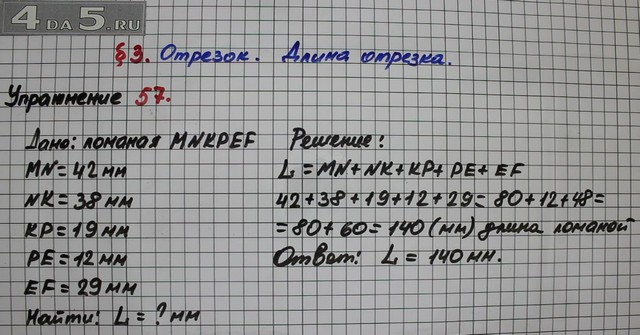 4DA5.RU
§3. Отрезок. Длина отрезка.
Упражнение 57.
Дано: ломаная MNKPEF
MN=42 мм
NK=38 мм
KP=19 мм
PE=12 мм
EF=29 мм
Найти: L=? мм
Решение:
L=MN+NK+KP+PE+EF
42+38+19+12+29=80+12+48=
=80+60=140(мм) длина ломаной
Ответ: L=140мм.